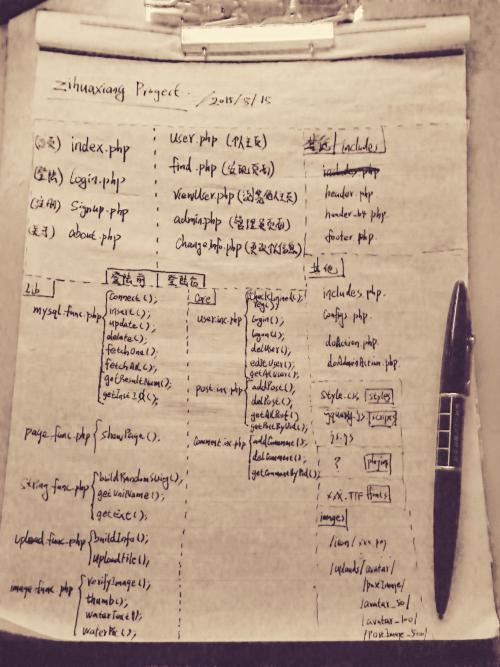 Zihuaxiang Progect. /2015/8/15
(首页) index.php
(登陆) Login.php
(注册) Signup.php
(关于) about.php
user.php (个人主页)
find.php (发现页面)
viewUser.php (浏览他人主页)
admin.php (管理员页面)
ChangeInfo.php (更改个人信息)
includes
header.php
header-br.php
footer.php
登陆前 登陆后
其他
includes.php.
Configs.php.
doAction.php.
doAdminAction.php.
style.css, styles
jquery.js scripts
js.js
? plugins
xxx.TTF fonts
images
/icon/xxx.png
/uploads/avatar/
/postImage/
/avatar_50/
/avatar_100/
/postImage_500/
Lib
mysql.func.php
Connect();
insert();
update();
delete();
fetchOne();
fetchAll();
getResultNum();
getInsertID();
page.func.php
showPage().
string.func.php
buildRandomString();
getUniName();
getExt();
upload.func.php
buildInfo();
uploadFile();
image.func.php
verifyImage();
thumb();
waterText();
waterPic();
Core
user.inc.php
CheckLogined();
Reg();
Login();
Logout();
delUser();
editUser();
getAllUser();
post.inc.php
addPost();
delPost();
getAllPost();
getPostByUid();
Comment.inc.php
addComment();
delComment();
getCommentByPid();